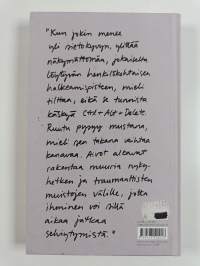 "Kun jokin menee
yli sietokyvyn, ylittää
näkymättömän, jokaiselta
löytyvän henkilökohtaisen
halkeamispisteen, mieli
tilttaa, eikä se tunnista
käskyä Ctrl + Alt + Delete.
Ruutu pysyy mustana,
mieli sen takana vaihtaa
kanavaa. Aivot alkavat
rakentaa muuria nyky-
hetken ja traumaattisten
muistojen välille, jotta
ihminen voi sillä
aikaa jatkaa
selviytymistä."